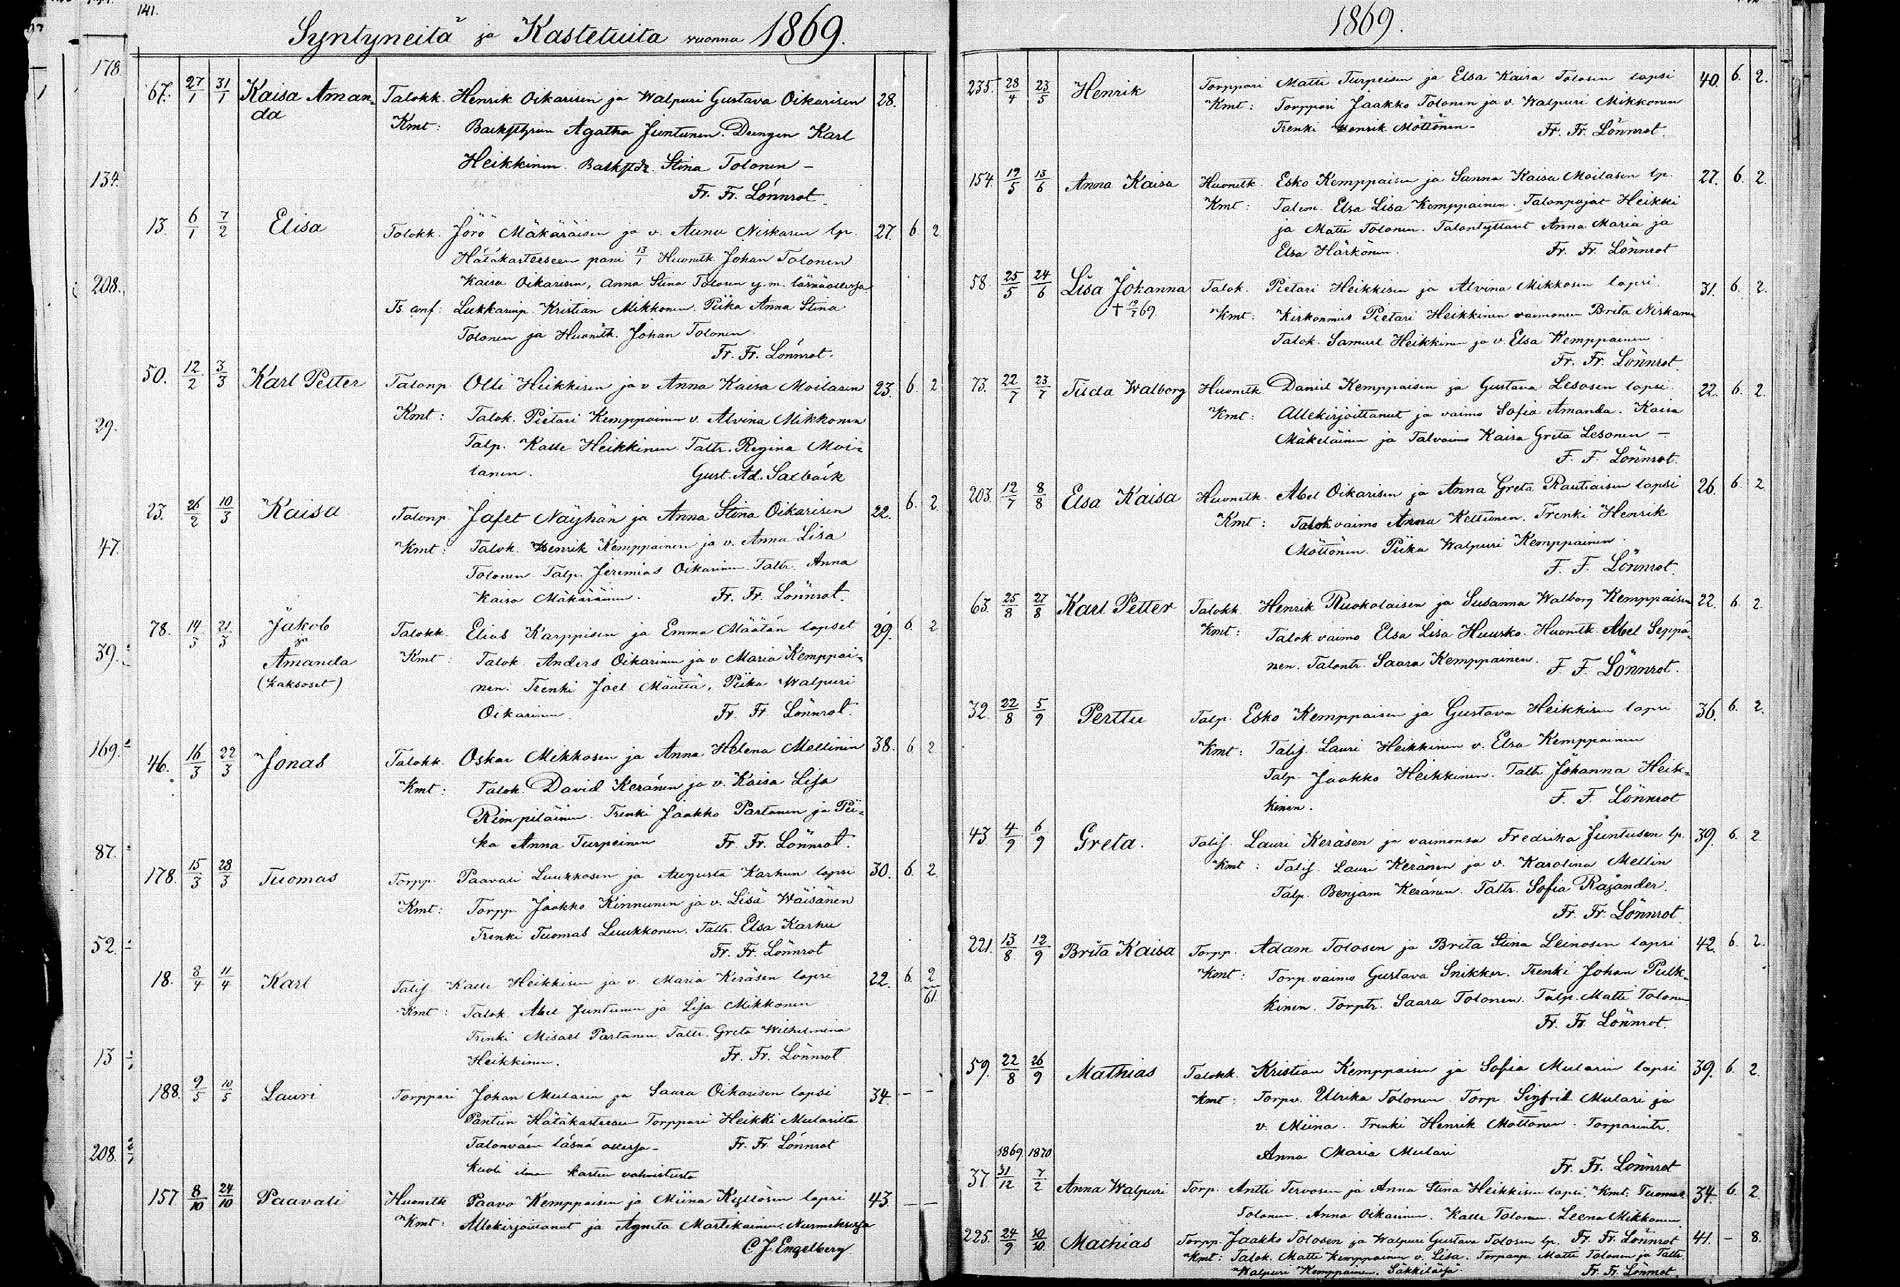 141.
Syntyneitä ja Kastetuita vuonna 1869.
178.
134.
208.
29.
47.
39.
169.
87.
52.
13
208.
67. 27/1 31/1 Kaisa Aman- Talokk. Henrik Oikarisen ja Walpuri Gustava Oikarisen 28.
da Kmt: Agatha Juntunen. Drengen Karl
Heikkinen. Stina Tolonen –
Fr. Fr. Lönnrot.
13. 6/1 7/2 Elisa Talokk. Jörö Mäkäräisen ja v. Aunu Niskasen lp. 27. 6 2
Hätäkasteeseen pani 13/1 Huonük Johan Tolonen
Kaisa Oikarisen, Anna Stina Tolosen y.m. läsnäollessa
Ts. anf: Lukkarinp. Kristian Mikkonen. Piika Anna Stina
Tolonen ja Huonük. Johan Tolonen.
Fr. Fr. Lönnrot.
50. 12/2 3/3 Karl Petter Talonp Olli Heikkisen ja v Anna Kaisa Moilasen 23. 6 2
Kmt: Talok. Pietari Kemppainen v. Alvina Mikkonen
Talp. Kalle Heikkinen. Taltr. Regina Moi-
lanen. Gust. Ad. Salbäck
23. 26/2 10/3 Kaisa Talonp. Jafet Näyhän ja Anna Stina Oikarisen 22. 6 2
Kmt: Talok. Henrik Kemppainen ja v. Anna Lisa
Tolonen Talp. Jeremias Oikarinen. Taltr. Anna
Kaisa Mäkäräinen. Fr. Fr. Lönnrot.
78. 14/3 21/3 Jakob Talokk. Elias Karppisen ja Emma Määtän lapset 29. 6 2
ja
Amanda Kmt: Talok. Anders Oikarinen ja v Maria Kemppai-
(kaksoset) nen. Trenki Joel Määttä, Piika Walpuri
Oikarinen. Fr. Fr Lönnrot.
46. 16/3 22/3 Jonas Talokk. Oskar Mikkosen ja Anna Helena Mellinin 38. 6 2
Kmt: Talok. David Keränen ja v. Kaisa Lisa
Rimpiläinen. Trenki Jaakko Partanen ja Pii-
ka Anna Turpeinen Fr. Fr. Lönnrot.
178. 15/3 28/3 Tuomas Torpp. Paavali Luukkosen ja Augusta Karhun lapsi 30. 6. 2
Kmt: Torpp. Jaakko Kinnunen ja v. Lisa Wäisänen
Trenki Tuomas Luukkonen. Taltr. Elsa Karhu
Fr. Fr. Lönnrot
18. 8/4 11/4 Karl Talij Kalle Heikkisen ja v. Maria Keräsen lapsi 22. 6. 2/61
Kmt: Talok. Abel Juntunen ja Lisa Mikkonen
Trenki Misael Partanen Taltr. Greta Wilhelmina
Heikkinen. Fr. Fr. Lönnrot
188. 9/5 10/5 Lauri Torppari Johan Mularin ja Saara Oikarisen lapsi 34. – –
Pantiin Hätäkasteesen Torppari Heikki Mularilta
Talonväen läsnä ollessa – Fr. Fr Lönnrot
kuoli ilman kasteen vahvistusta
157 8/10 24/10 Paavali Huonük Paavo Kemppaisen ja Miina Kyllösen lapsi 43. – –
Kmt: Allekirjoittanut ja Agneta Martikainen. Nurmeksessa
C. J. Engelberg
1869.
235. 28/4 23/5 Henrik Torppari Matti Turpeisen ja Elsa Kaisa Tolosen lapsi 40. 6. 2.
Kmt: Torppari Jaakko Tolonen ja v. Walpuri Mikkonen
Trenki Henrik Möttönen – Fr. Fr. Lönnrot.
154. 19/5 13/6 Anna Kaisa Huonük. Esko Kemppaisen ja Sanna Kaisa Moilasen lp. 27. 6. 2.
Kmt: Talon. Elsa Lisa Kemppainen. Talonpojat Heikki
ja Matti Tolonen. Talontyttäret Anna Maria ja
Elsa Härkönen. Fr. Fr. Lönnrot
58 25/5 24/6 Lisa Johanna Talok. Pietari Heikkisen ja Alvina Mikkosen lapsi. 31. 6. 2.
† 69 Kmt: Kirkonmies Pietari Heikkinen vaimonen Brita Niskanen
Talok. Samuel Heikkinen ja v Elsa Kemppainen.
Fr. Fr. Lönnrot
73. 22/7 23/7 Tilda Walborg Huonük Daniel Kemppaisen ja Gustava Lesosen lapsi. 22. 6. 2.
Kmt: Allekirjoittanut ja vaimo Sofia Amanda. Kaisa
Mäkeläinen ja Talvaimo Kaisa Greta Lesonen –
F. F. Lönnrot.
203. 12/7 8/8 Elsa Kaisa Huonük. Abel Oikarisen ja Anna Greta Rautiaisen lapsi 26. 6 2
Kmt: Talok vaimo Anna Keltunen. Trenki Henrik
Möttönen. Piika Walpuri Kemppainen.
F. F. Lönnrot.
63. 25/8 27/8 Karl Petter Talokk. Henrik Ruokolaisen ja Susanna Walborg Kemppaisen 22. 6. 2.
Kmt: Talok vaimo Elsa Lisa Huusko. Huonük Abel Seppä-
nen. Talontr. Saara Kemppainen. F. F. Lönnrot.
32. 22/8 5/9 Perttu Talp. Esko Kemppaisen ja Gustava Heikkisen lapsi 36. 6. 2.
Kmt: Talij. Lauri Heikkinen v. Elsa Kemppainen
Talp. Jaakko Heikkinen. Taltr Johanna Heik-
kinen. F. F. Lönnrot
43 4/9 6/9 Greta. Talij. Lauri Keräsen ja vaimonsa Fredrika Juntusen lp. 39. 6. 2
Kmt: Talij. Lauri Keränen ja v. Karolina Mellin
Talp. Benjam Keränen. Taltr. Sofia Rajander.
Fr. Fr. Lönnrot.
221. 13/8 12/9 Brita Kaisa Torpp. Adam Tolosen ja Brita Stina Leinosen lapsi 42. 6. 2.
Kmt: Torp. vaimo Gustava Snikker. Trenki Johan Pulk-
kinen. Torptr. Saara Tolonen. Talp. Matti Tolonen
Fr. Fr Lönnrot.
59. 22/8 26/9 Mathias Talokk. Kristian Kemppaisen ja Sofia Mularin lapsi 39. 6. 2.
Kmt: Torpv. Ulrika Tolonen Torp. Sigfrid Mulari ja
v. Miina. Trenki Henrik Möttönen. Torparintr.
Anna Maria Mulari
Fr. Fr. Lönnrot
1869 1870
37 31/12 7/2 Anna Walpuri Torp. Antti Tervosen ja Anna Stina Heikkisen lapsi. Kmt: Tuomas 34. 6. 2
Tolonen. Anna Oikarinen. Kalle Tolonen. Leena Mikkonen.
Fr. Fr. Lönnrot
225. 24/9 10/10 Mathias Torpp. Jaakko Tolosen ja Walpuri Gustava Tolosen lp. 41. – 8.
Kmt: Talok. Matti Kemppainen v. Lisa. Torparp. Matti Tolonen ja Taltr.
Walpuri Kemppainen. Säkkilästä. Fr. Fr. Lönnrot.